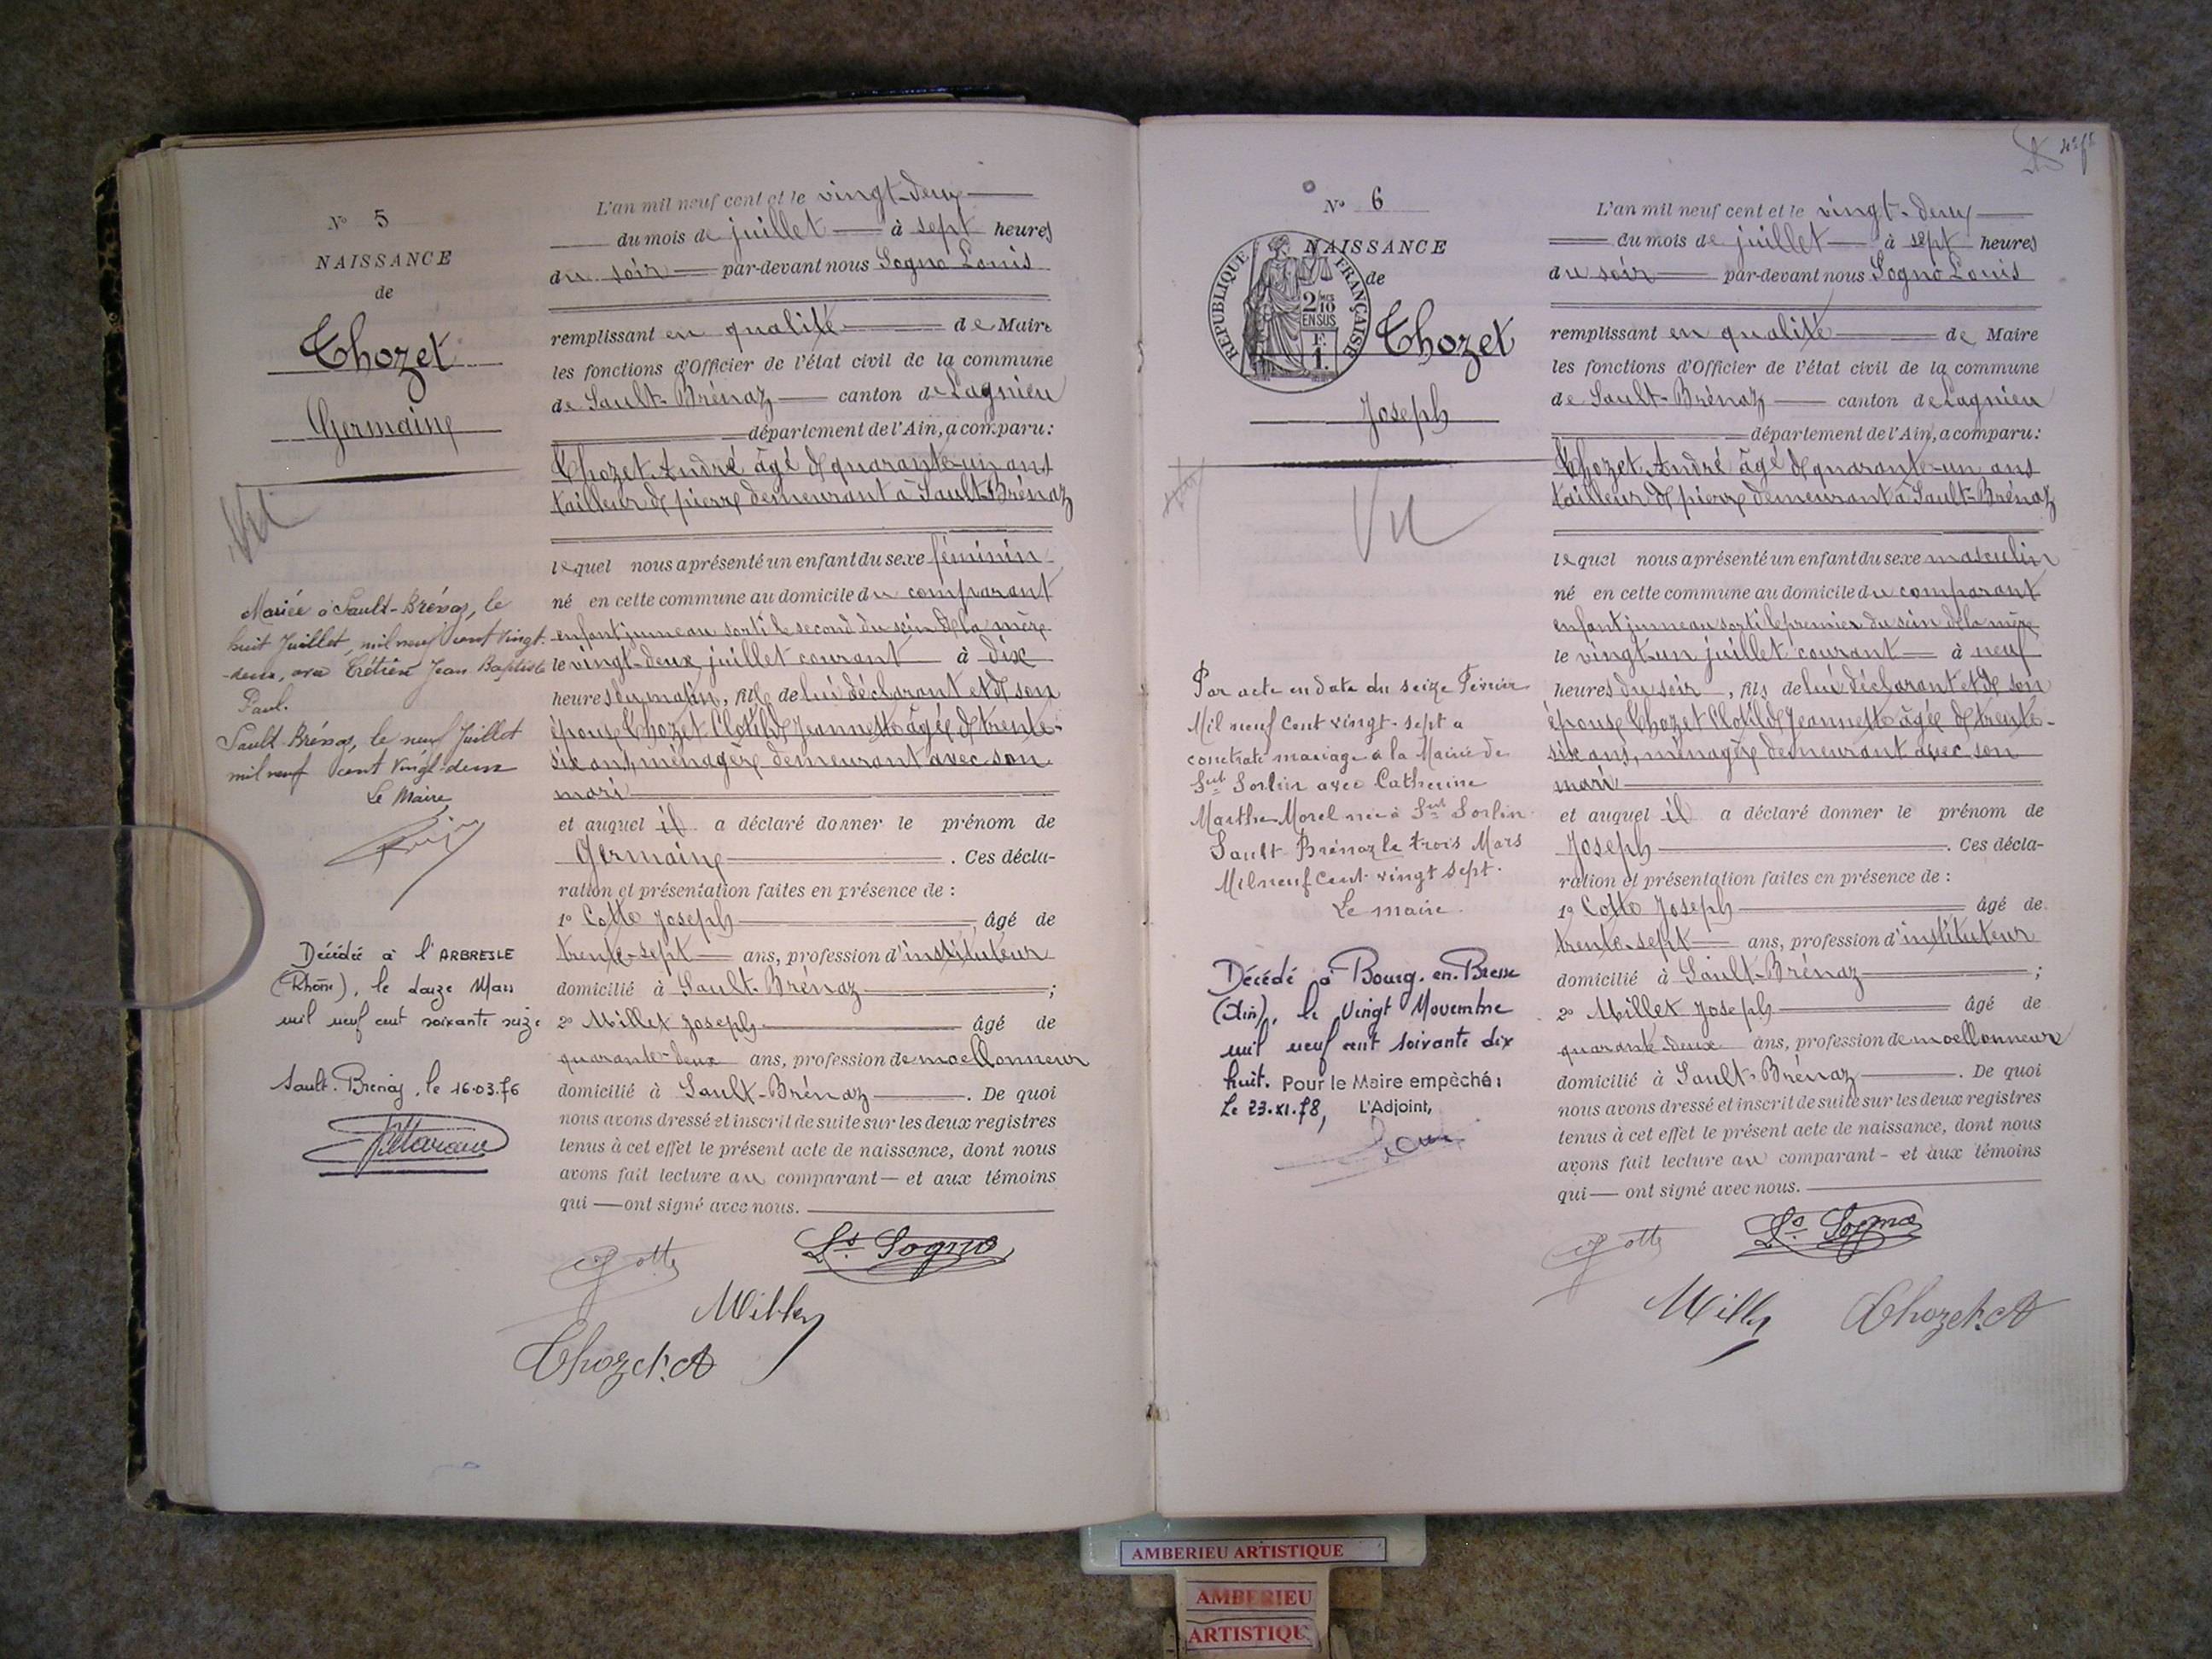 N° 5
NAISSANCE
de
Thozet
Germaine
Vu
Mariée à Sault-Brénaz, le
huit Juillet, mil neuf cent vingt-
-deux, avec Crétien Jean Baptiste
Paul.
Sault-Brénaz, le neuf Juillet
mil neuf cent vingt-deux
Le Maire
Décédée à l'ARBRESLE
(Rhône), le douze Mars
mil neuf cent soixante seize
Sault-Brénaz, le 16.03.76
L'an mil neuf cent et le vingt-deux
du mois de juillet à sept heures
du soir par-devant nous Sogno Louis
remplissant en qualité de Maire
les fonctions d'Officier de l'état civil de la commune
de Sault-Brénaz canton de Lagnieu
département de l'Ain, a comparu:
Thozet André âgé de quarante-un ans
tailleur de pierre demeurant à Sault-Brénaz
lequel nous a présenté un enfant du sexe féminin
né en cette commune au domicile du comparant
enfant jumeau sorti le second du sein de la mère
le vingt-deux juillet courant à dix
heures du matin, fille de lui déclarant et de son
épouse Chozet Clotilde Jeannette âgée de trente-
six ans, ménagère demeurant avec son
mari
et auquel il a déclaré donner le prénom de
Germaine. Ces décla-
ration et présentation faites en présence de :
1° Cotte Joseph, âgé de
trente-sept ans, profession d'instituteur
domicilié à Sault-Brénaz ;
2° Millet Joseph âgé de
quarante-deux ans, profession de moellonneur
domicilié à Sault-Brénaz. De quoi
nous avons dressé et inscrit de suite sur les deux registres
tenus à cet effet le présent acte de naissance, dont nous
avons fait lecture au comparant — et aux témoins
qui — ont signé avec nous.
Cotte
Ls. Sogno
Millet
Thozet. A
N° 6
NAISSANCE
de
RÉPUBLIQUE FRANÇAISE
2/10 EN SUS
F. 1.
Thozet
Joseph
Vu
Par acte en date du seize Février
Mil neuf cent vingt-sept a
contracté mariage à la Mairie de
Snt Sorlin avec Catherine
Marthe Morel née à Snt Sorlin
Sault Brénaz le trois Mars
Mil neuf cent vingt sept.
Le maire
Décédé à Bourg-en-Bresse
(Ain), le Vingt Novembre
mil neuf cent soixante dix
huit. Pour le Maire empêché :
Le 23.XI.78, L'Adjoint,
L'an mil neuf cent et le vingt-deux
du mois de juillet à sept heures
du soir par-devant nous Sogno Louis
remplissant en qualité de Maire
les fonctions d'Officier de l'état civil de la commune
de Sault-Brénaz canton de Lagnieu
département de l'Ain, a comparu:
Thozet André âgé de quarante-un ans
tailleur de pierre demeurant à Sault-Brénaz
lequel nous a présenté un enfant du sexe masculin
né en cette commune au domicile du comparant
enfant jumeau sorti le premier du sein de la mère
le vingt-un juillet courant à neuf
heures du soir, fils de lui déclarant et de son
épouse Chozet Clotilde Jeannette âgée de trente-
six ans, ménagère demeurant avec son
mari
et auquel il a déclaré donner le prénom de
Joseph. Ces décla-
ration et présentation faites en présence de :
1° Cotte Joseph âgé de
trente-sept ans, profession d'instituteur
domicilié à Sault-Brénaz ;
2° Millet Joseph âgé de
quarante-deux ans, profession de moellonneur
domicilié à Sault-Brénaz. De quoi
nous avons dressé et inscrit de suite sur les deux registres
tenus à cet effet le présent acte de naissance, dont nous
avons fait lecture au comparant - et aux témoins
qui — ont signé avec nous.
Cotte
Ls. Sogno
Millet
Thozet. A
AMBERIEU ARTISTIQUE
AMBERIEU
ARTISTIQUE